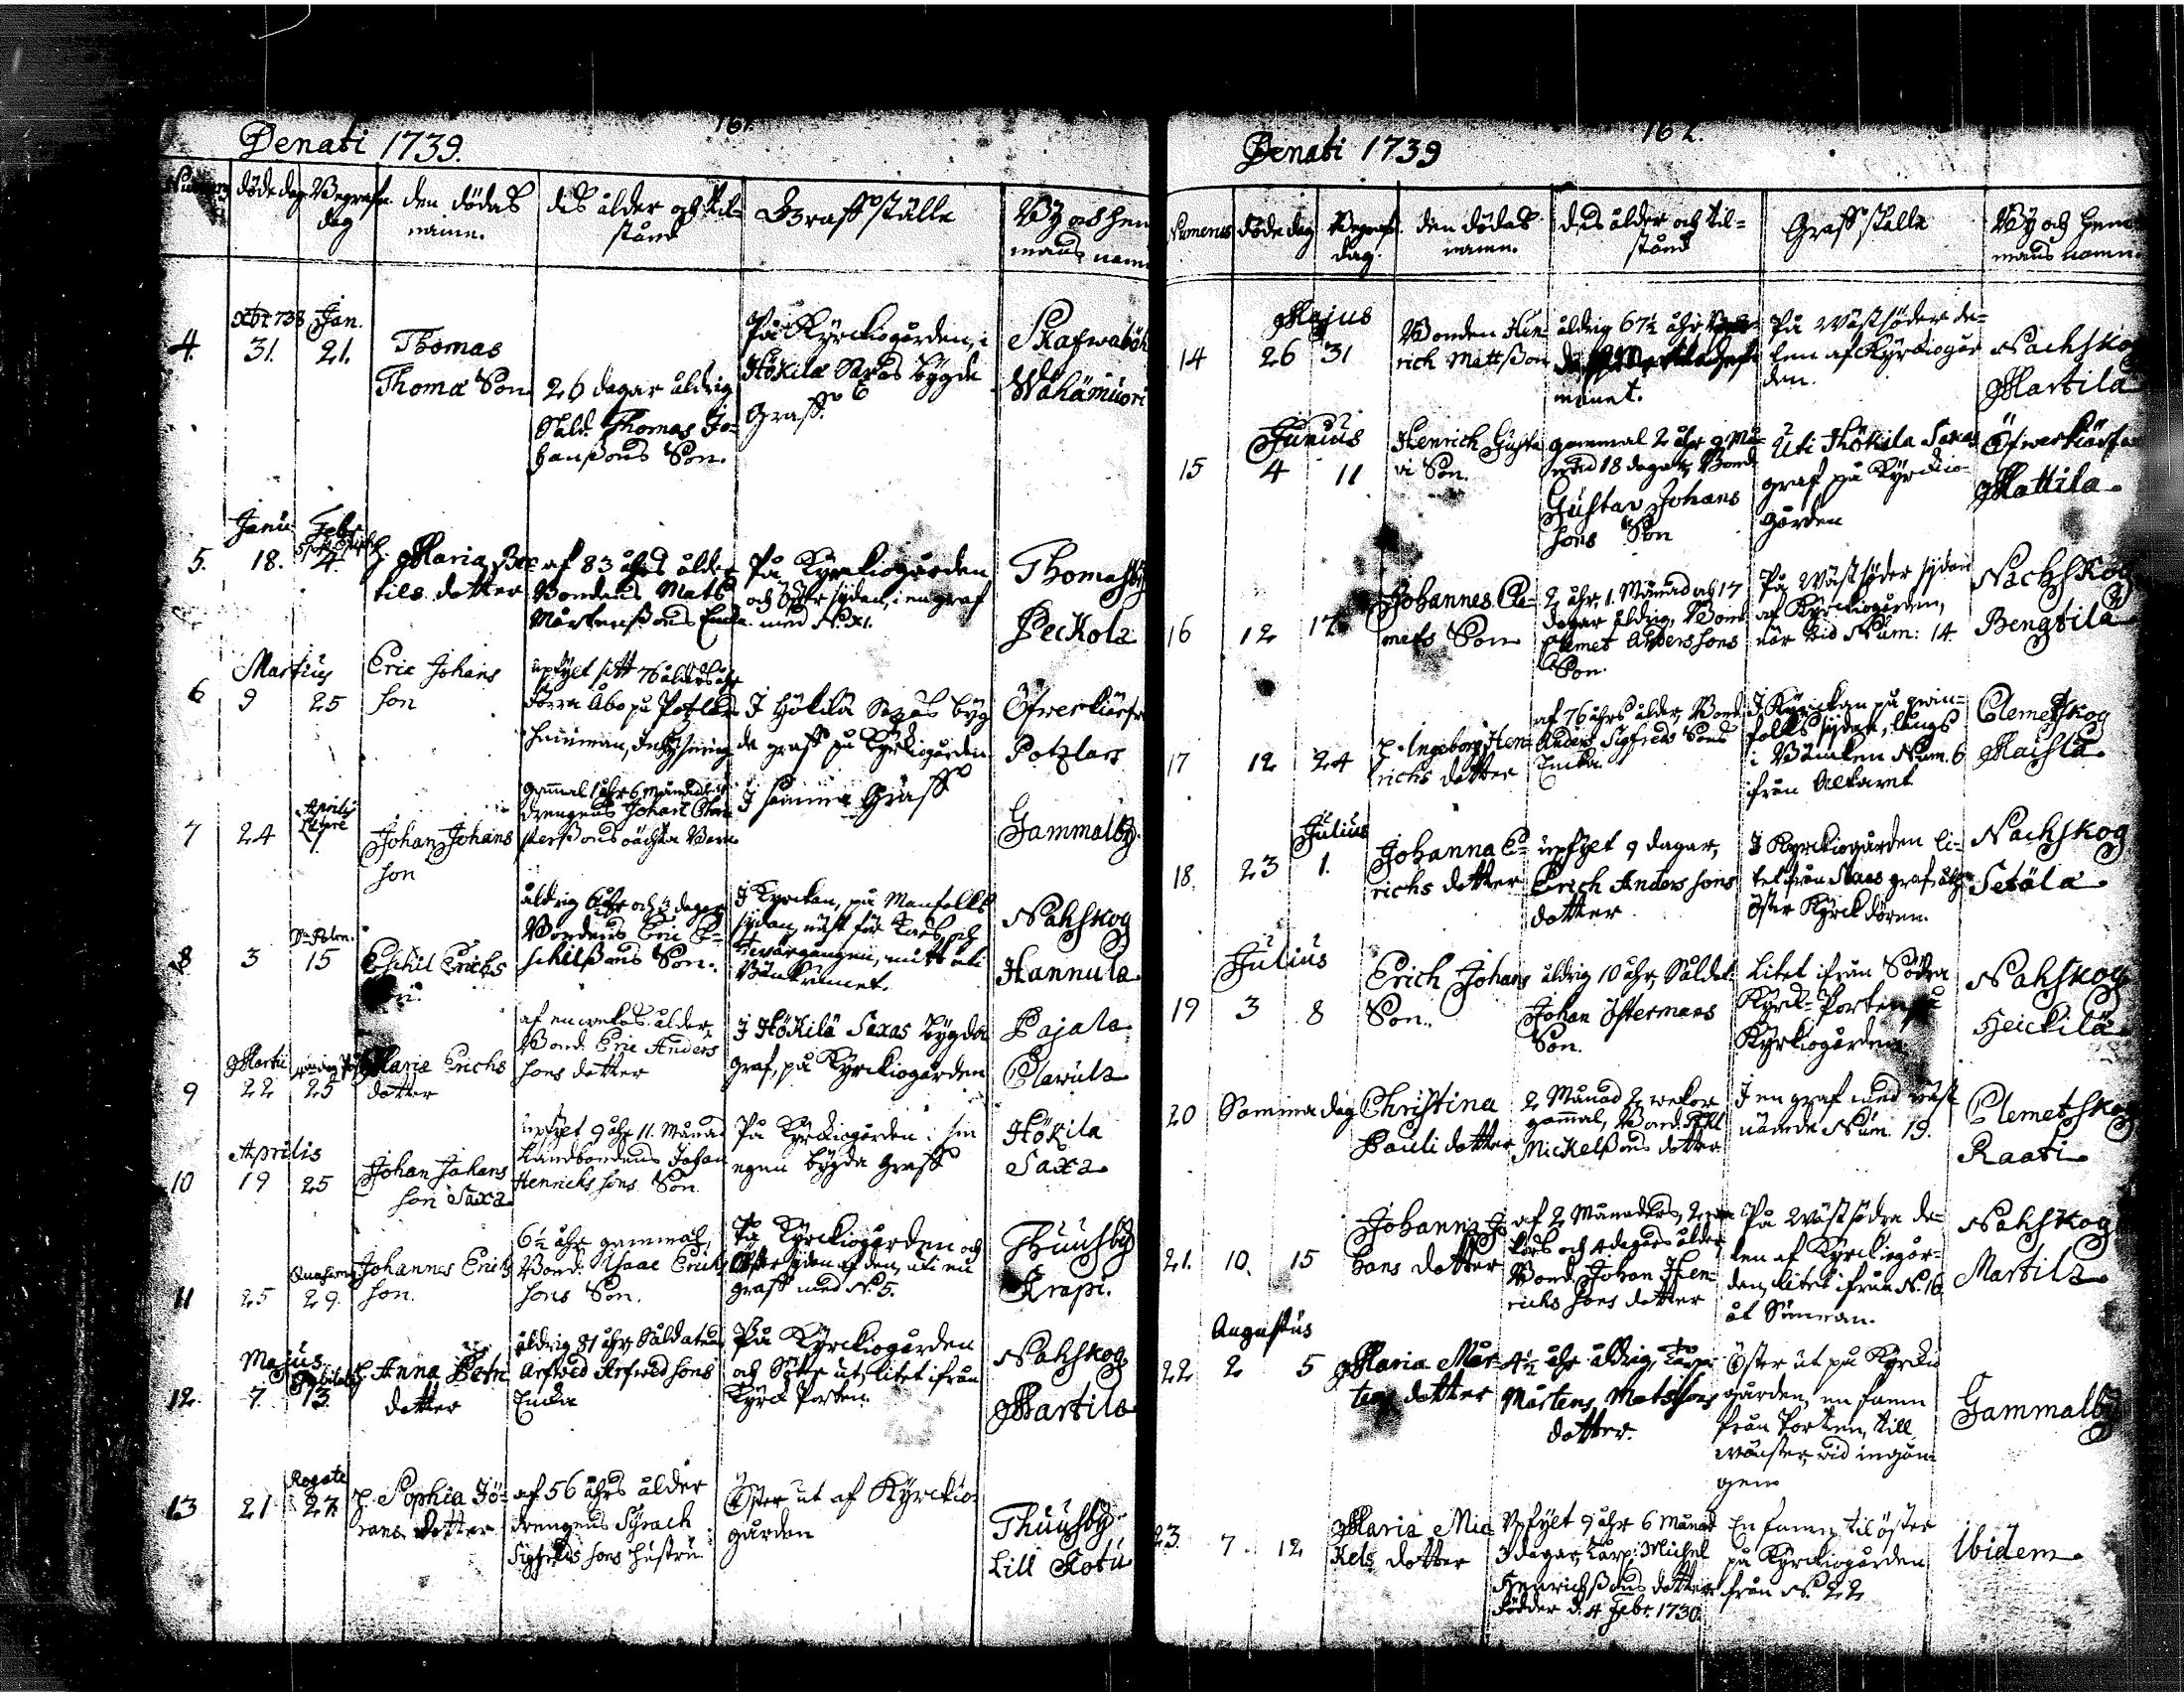 161.
Denati 1739.
Numerus
döde dag
Begrafn.
dag
den dödas
namn.
des ålder och til-
stånd
Graffställe
By och hem
mans namn
4.
Xbr 738
31.
Jan.
21.
Thomas
Thomæ Son
26 dagar åldrig
Sald. Thomas Jo-
hanssons Son.
På Kyrkiogården, i
Hökilä Saxas bygde
Graff.
Wähämuori
5.
Janu
18.
Febr
4.
H. Maria Ber
tils dotter
af 83 åhrs ålder
Bondens Mats
Mårtenssons Enka
På Kyrkiogården
och Öster sydan, i en graf
med N. XI.
Thomasby
Peckola
6
Martius
9
25
Eric Johans
son
upfylt sitt 76 ålders åhr
I Hökilä Saxas byg
da graff på Kyrkiogården
Öfwerkiörf
Potzlars
7
24
Aprilis
1
Johan Johans
son
gammal 1 åhr 6 månader
drengens Johan
I samma Graff
Gammalby
8
3
15
Eschil Erichs
åldrig 6 åhr och 3 dagar
Bondens Eric E-
schilssons Son.
I Kyrckan, på Manfolks
sydan, näst för
twärgången, mitt uti
Bänkrumet.
Nahskog
Hannula
9
Martii
22
25
Maria Erichs
dotter
af en wekas ålder
Bond. Eric Anders
sons dotter
I Hökilä Saxas bygda
graf, på Kyrckiogården
Pajala
Clawula
10
Aprilis
19
25
Johan Johans
son Saxa
upfylt 9 åhr 11. Månad
Landbondens Johan
Henrichssons Son.
På Kyrckiogården i sin
egen bygda Graff
Hökila
Saxa
11
25
29.
Johannes Erichs
son.
6½ åhr gammal,
Bond. Isaac Erichs
sons Son.
På Kyrckiogården och
Östersydan af den, uti en
graff med N. 5.
Thuusby
Krapi.
12.
Majus
7
Jubilate
13
H. Anna Petri
dotter
åldrig 81 åhr, Saldatens
Arfwed Arfwedsons
Enka
På Kyrckiogården
och Söder ut, litet ifrån
Kyrck Porten.
Nahskog
Martila
13
21
Rogate
27.
H. Sophia Jö-
rans dotter
af 56 åhrs ålder
drengens Syrach
Sigfreds sons hustru
Öster ut af Kyrckio-
gården
Thuusby
Lill Kotu
162.
Denati 1739
Numerus
döde dag
Begrafn.
dag.
den dödas
namn.
des ålder och til-
stånd
Graffställe
By och hem
mans namn.
14
Majus
26
31
Bonden Hen-
rich Mattsson
åldrig 67½ åhr
På wästsöder de-
len af Kyrckiogår
den.
Nachskog
Martila
15
Junius
4
11
Henrich Gusta
vi Son.
gammal 2 åhr 9 må-
nad 18 dagar, Bond.
Gustav Johans
sons Son
Uti Hökila Saxas
graf på Kyrckio-
gården
Öfwerkiörf
Mattila
16
12
17
Johannes Cle-
mets Son
2 åhr, 1. Månad och 17
dagar åldrig, Bond.
Clemet Anderssons
Son.
På Wästsöder sydan
af Kyrckiogården,
när wid Num: 14
Nachskog
Bengtila
17
12
24
H. Ingeborg Hen-
richs dotter
af 76 åhrs ålder, Bond.
Anders Sigfreds Sons
Enka
I Kyrckan på qwin-
folks sydan, längs
i Bäncken Num. 6
ifrån Altaret
Clemetskog
Maisla
18.
23
Julius
1.
Johanna E-
richs dotter
upfylt 9 dagar,
Erich Anders sons
dotter
I Kyrckiogården li-
tet ifrån Staas graf åt
Öster Kyrckdören.
Nachskog
Setälä
19
Julius
3
8
Erich Johans
Son.
åldrig 10 åhr, Saldat
Johan Östermans
Son.
Litet ifrån Södra
Kyrck-Porten på
Kyrkiogården
Nahskog
Heickilä
20
Samma dag
Christina
Pauli dotter
2 Månad 2 wekor
gammal, Bond. Påhl
Mickelssons dotter
I en graf med näst
nämde Num. 19.
Clemetskog
Raati
21.
10.
15
Johanna Jo
hans dotter
af 2 Månaders, 2 we
kors och 4 dagars ålder
Bond. Johan Hen-
richs sons dotter
På wästsödra de-
len af Kyrckiogår-
den, litet ifrån N. 16
åt Sunnan.
Nahskog
Martila
22
Augustus
2
5
Maria Mår-
tens dotter
4½ åhr åldrig, Corp.
Mårtens Matssons
dotter.
Öster ut på Kyrckio
gården, en famn
från Porten, till
wänster, wid ingån
gen
Gammalby
23.
7.
12
Maria Mic
kels dotter
Upfylt 9 åhr 6 månad
3 dagar, Corp. Michel
Henrichssons dotter
födder d. 4 Febr. 1730.
En famn til öster
på Kyrckiogården
ifrån N. 22
Ibidem